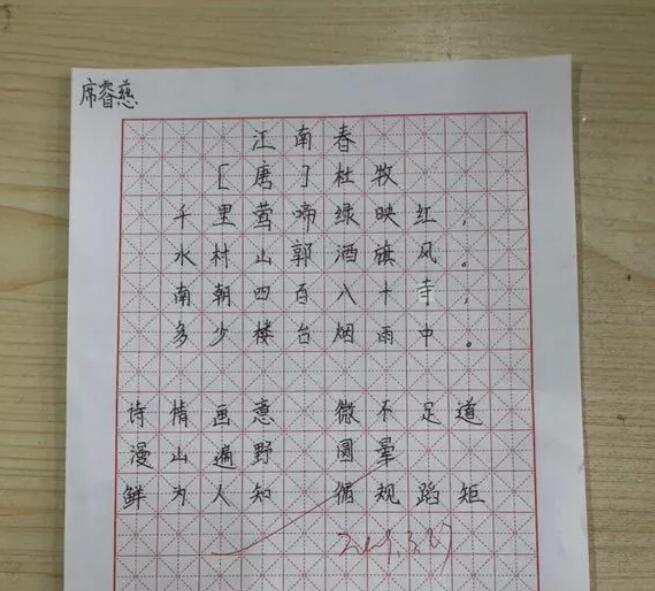 席睿慈
江南春
[唐]杜牧
千里莺啼绿映红,
水村山郭酒旗风。
南朝四百八十寺,
多少楼台烟雨中。
诗情画意 微不足道
漫山遍野 圆晕
鲜为人知 循规蹈矩